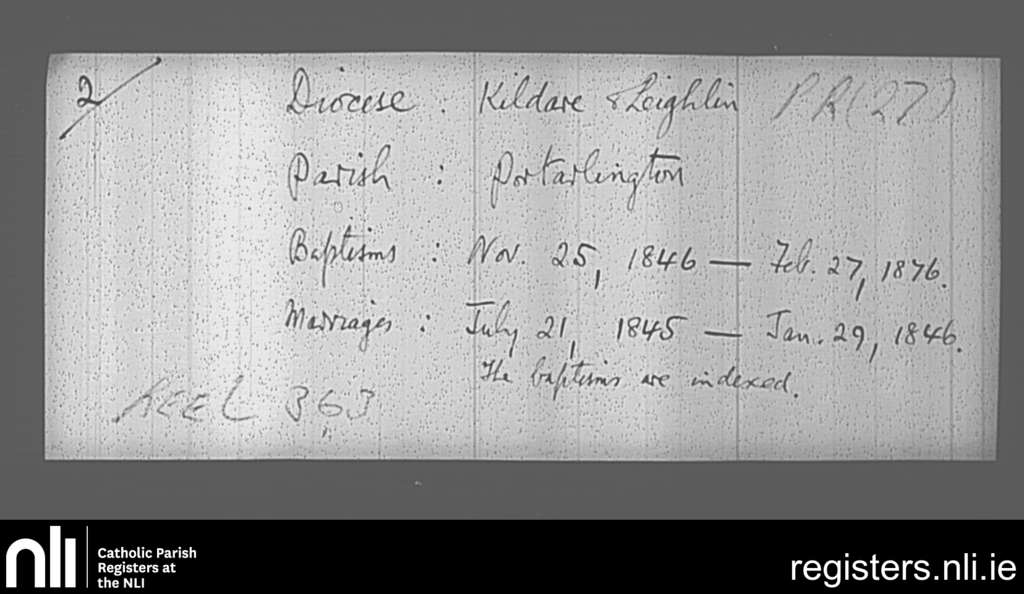 2/
Diocese : Kildare & Leighlin P.R(27)
Parish : Portarlington
Baptisms : Nov. 25, 1846 — Feb. 27, 1876.
Marriages : July 21, 1845 — Jan. 29, 1846.
The baptisms are indexed.
REEL 363
nli
Catholic Parish
Registers at
the NLI
registers.nli.ie